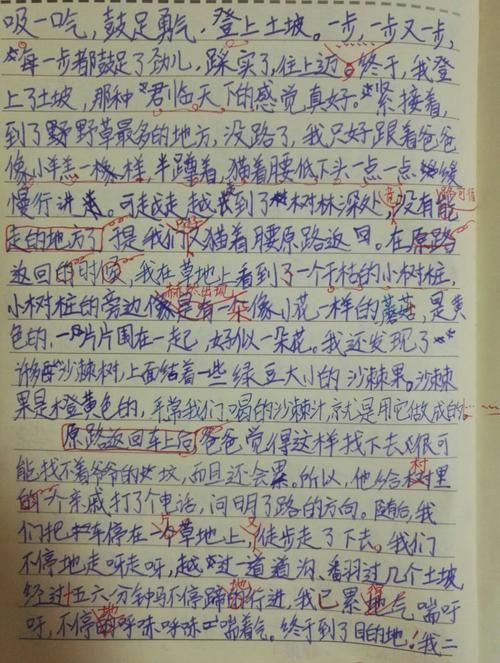 吸一口气，鼓足勇气，登上土坡。一步，一步又一步，
每一步都鼓足了劲儿，踩实了，往上迈。终于，我登
上了土坡，那种"君临天下的感觉真好。"紧接着，
到了野野草最多的地方，没路了，我只好跟着爸爸
像小羊羔一样，半蹲着，猫着腰低下头一点一点缓
慢行进。可越走越到了树林深处，没有能 路可循
走的地方了 我们又猫着腰原路返回。在原路
返回的时候，我在草地上看到了一个干枯的小树桩，
小树桩的旁边像是有一朵像小花一样的蘑菇，是黄
色的，一片片围在一起，好似一朵花。我还发现了
许多沙棘树，上面结着一些绿豆大小的沙棘果。沙棘
果是橙黄色的，平常我们喝的沙棘汁，就是用它做成的。
原路返回车上后 爸爸觉得这样找下去很可
能找不着爷爷的坟，而且还会累。所以，他给村里
的一个亲戚打了个电话，问明了路的方向。随后，我
们把车停在一个草地上，徒步走了下去。我们
不停地走呀走呀，越过一道道沟、翻过几个土坡
经过五六分钟马不停蹄的地行进，我已累得气喘吁
吁，不停的地呼哧呼哧喘着气。终于到了目的地！我二